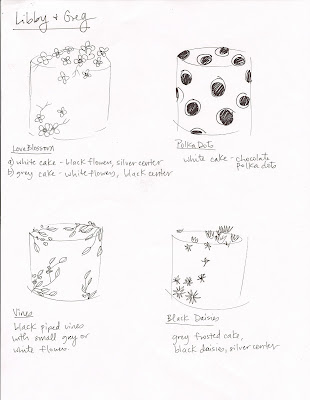 Libby + Greg
Love Blossom
a) white cake - black flowers, silver center
b) grey cake - white flowers, black center
Polka Dots
white cake - chocolate
polka dots
Vines
black piped vines
with small gray or
white flowers
Black Daisies
grey frosted cake,
black daisies, silver center